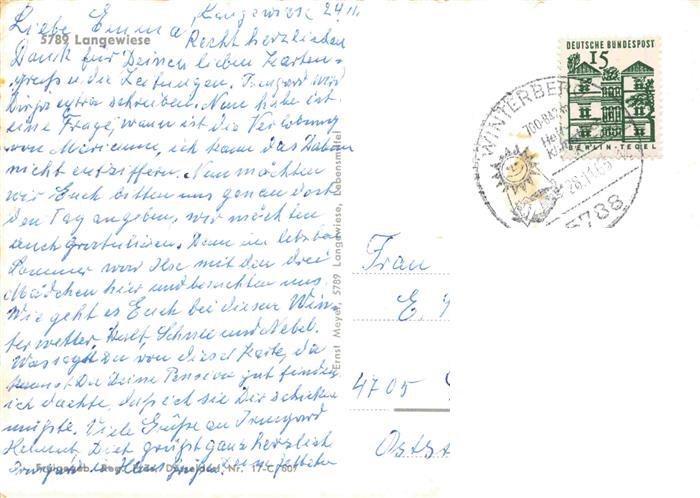 Langewiese 24.11.
Liebe Emma
5789 Langewiese
Recht herzlichen
Dank für Deinen lieben Karten-
gruß u. die Zeitungen. Irmgard wird
Dir extra schreiben. Nun habe ich
eine Frage, wann ist die Verlobung
von Marianne, ich kann das Datum
nicht entziffern. Nun möchten
wir Euch bitten uns genau doch
den Tag angeben, wir möchten
auch gratulieren. Denn im letzten
Sommer war Ilse mit den drei
Mädchen hier und besuchten uns.
Wie geht es Euch bei diesem Win-
terwetter, Kalt, Schnee und Nebel.
Was sagst Du von dieser Karte, da
kannst Du Deine Pension gut finden
ich dachte, daß ich sie Dir schicken
müßte. Viele Grüße an Irmgard
Helmut. Dich grüßt ganz herzlich
Freigegeb. Reg. Präs. Düsseldorf Nr. 17-C 607
Ernst Meyer, 5789 Langewiese, Lebensmittel
DEUTSCHE BUNDESPOST
15
BERLIN-TEGEL
WINTERBERG
700
5788
Frau
E.
4705